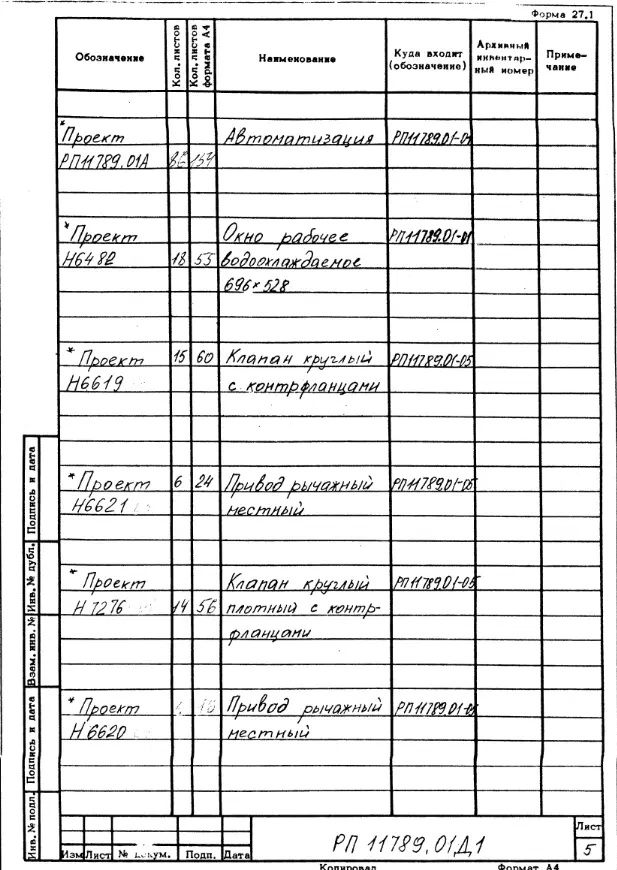 Форма 27.1
Обозначение
Кол. листов
Кол. листов формата А4
Наименование
Куда входит (обозначение)
Архивный инвентарный номер
Примечание
* Проект Автоматизация РП11789.01-01
РП11789.01А
* Проект Окно рабочее РП11789.01-01
Н6482 18 53 водоохлаждаемое
696×528
* Проект 15 60 Клапан круглый РП11789.01-05
Н6619 с контрфланцами
* Проект 6 24 Привод рычажный РП11789.01-05
Н6621 местный
* Проект Клапан круглый РП11789.01-05
Н7276 14 56 плотный с контр-
фланцами
* Проект Привод рычажный РП11789.01-05
Н6620 местный
Инв. № подл. Подпись и дата Взам. инв. № Инв. № дубл. Подпись и дата
РП 11789.01Д1
Лист
5
Изм Лист № докум. Подп. Дата
Копировал Формат А4